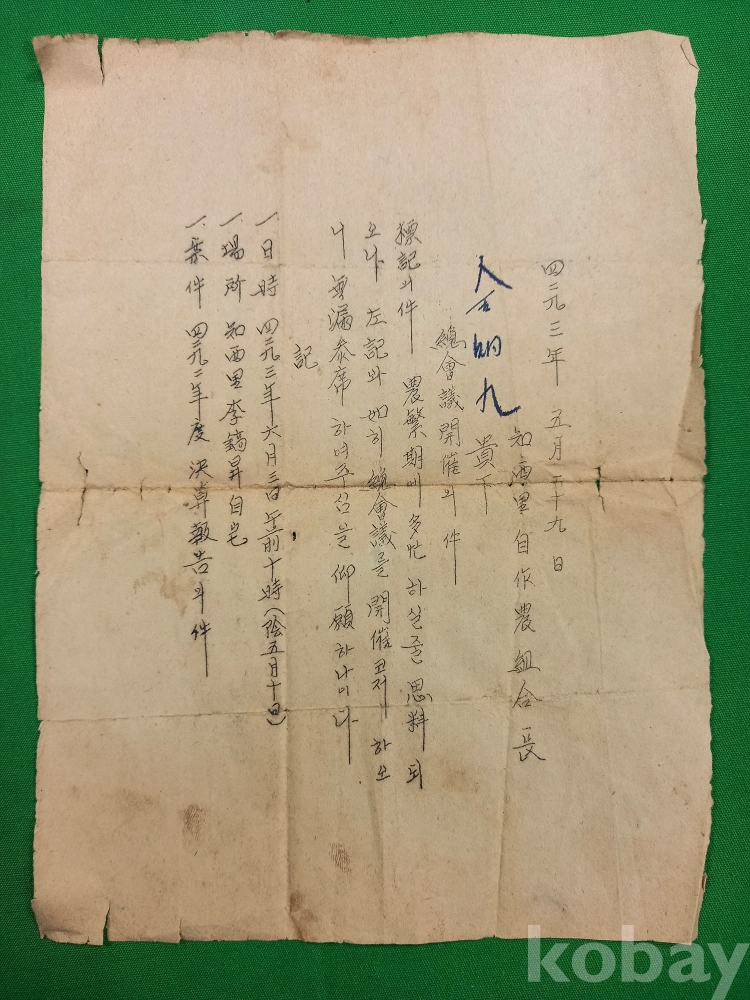 四二九三年 五月二十九日
知西里自作農組合長
明九 貴下
總會議開催의件
標記의件 農繁期에 多忙하실줄 思料되
오나 左記와 如히 總會議를 開催코저 하오
니 無漏參席하여주심을 仰願하나이다
記
一. 日時 四二九三年六月三日午前十時(陰五月十日)
一. 場所 知西里李鎬昇自宅
一. 案件 四二九二年度 決算報告의件
kobay